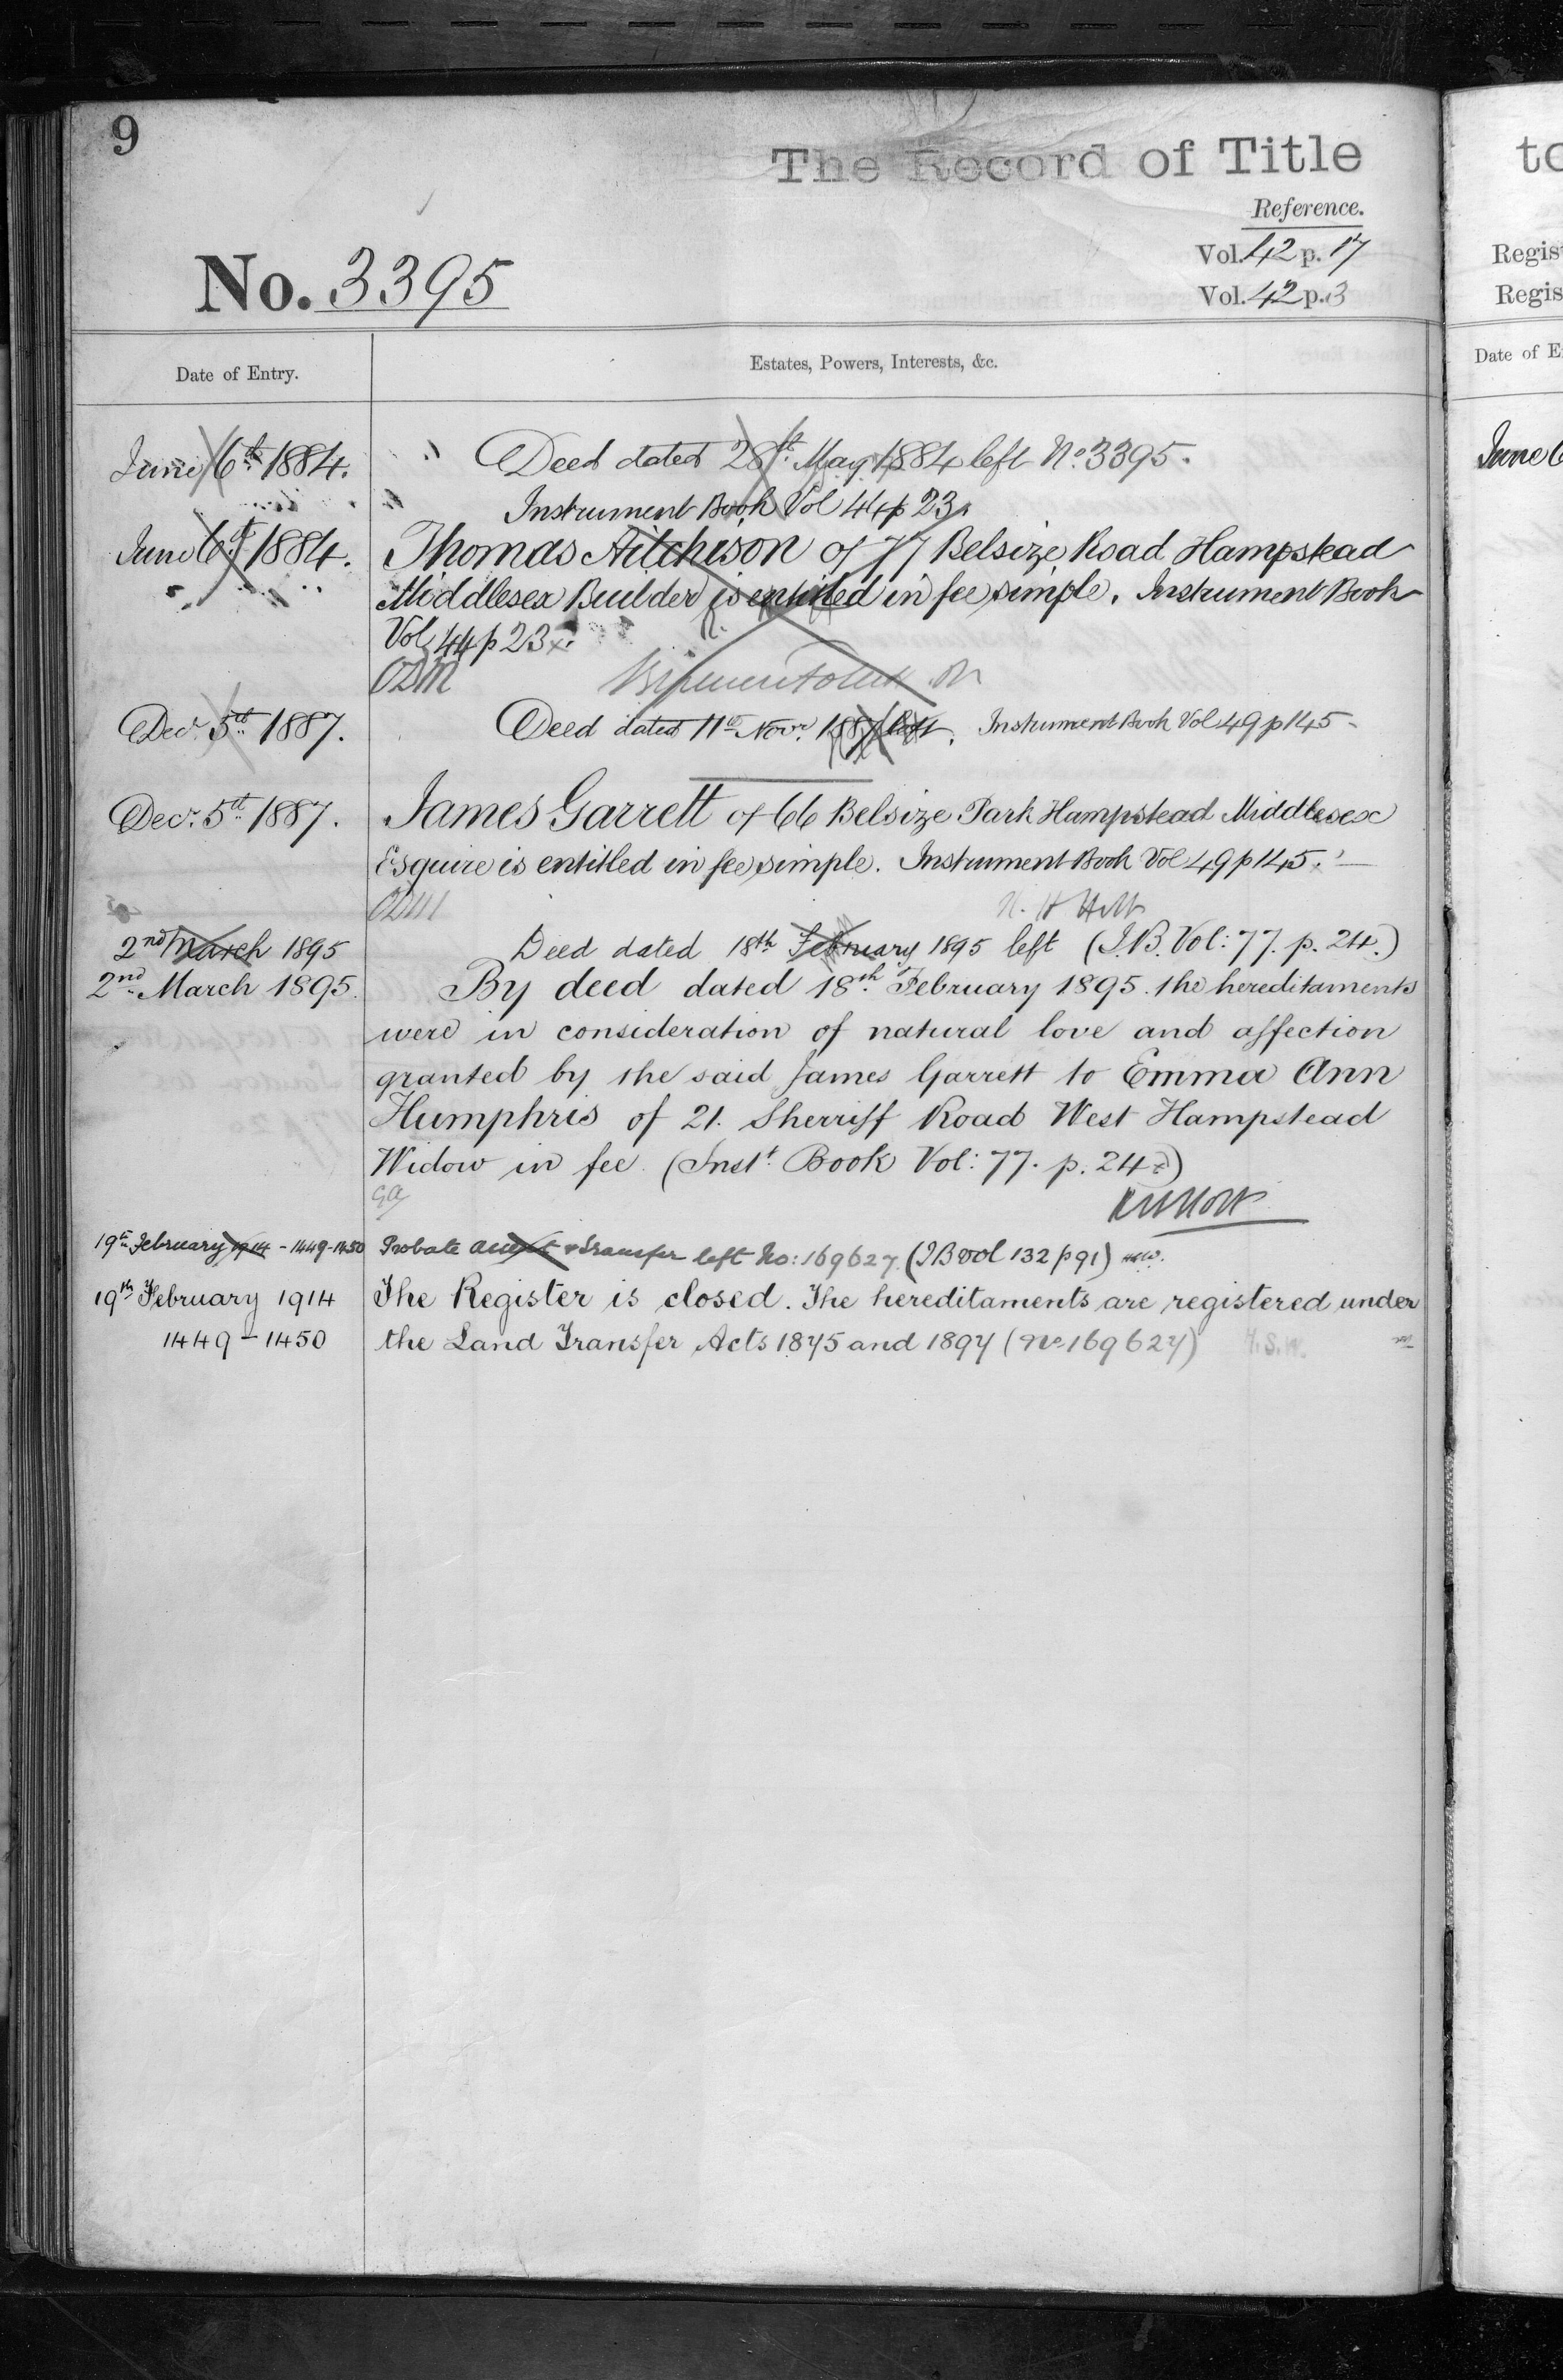 9
The Record of Title
Reference.
Vol. 42 p. 17
Vol. 42 p. 3
No. 3395
Date of Entry.
Estates, Powers, Interests, &c.
June 6th 1884. Deed dated 28th May 1884 left No. 3395.
Instrument Book Vol 44 p 23.
June 6th 1884. Thomas Aitchison of 77 Belsize Road Hampstead
Middlesex Builder is entitled in fee simple. Instrument Book
Vol 44 p 23.
Decr. 5th 1887. Deed dated 11th Novr. 1887 left. Instrument Book Vol 49 p 145
Decr. 5th 1887. James Garrett of 66 Belsize Park Hampstead Middlesex
Esquire is entitled in fee simple. Instrument Book Vol 49 p 145.
2nd March 1895 Deed dated 18th February 1895 left (I.B. Vol: 77. p. 24.)
2nd March 1895. By deed dated 18th February 1895. the hereditaments
were in consideration of natural love and affection
granted by the said James Garrett to Emma Ann
Humphris of 21. Sherriff Road West Hampstead
Widow in fee. (Inst. Book Vol: 77. p. 24)
19th February 1914 - 1449-1450 Probate & Transfer left No: 169627. (IB vol 132 p 91)
19th February 1914 The Register is closed. The hereditaments are registered under
1449-1450 the Land Transfer Acts 1875 and 1897 (No. 169627)
to
Regis
Regis
Date of E
June 6